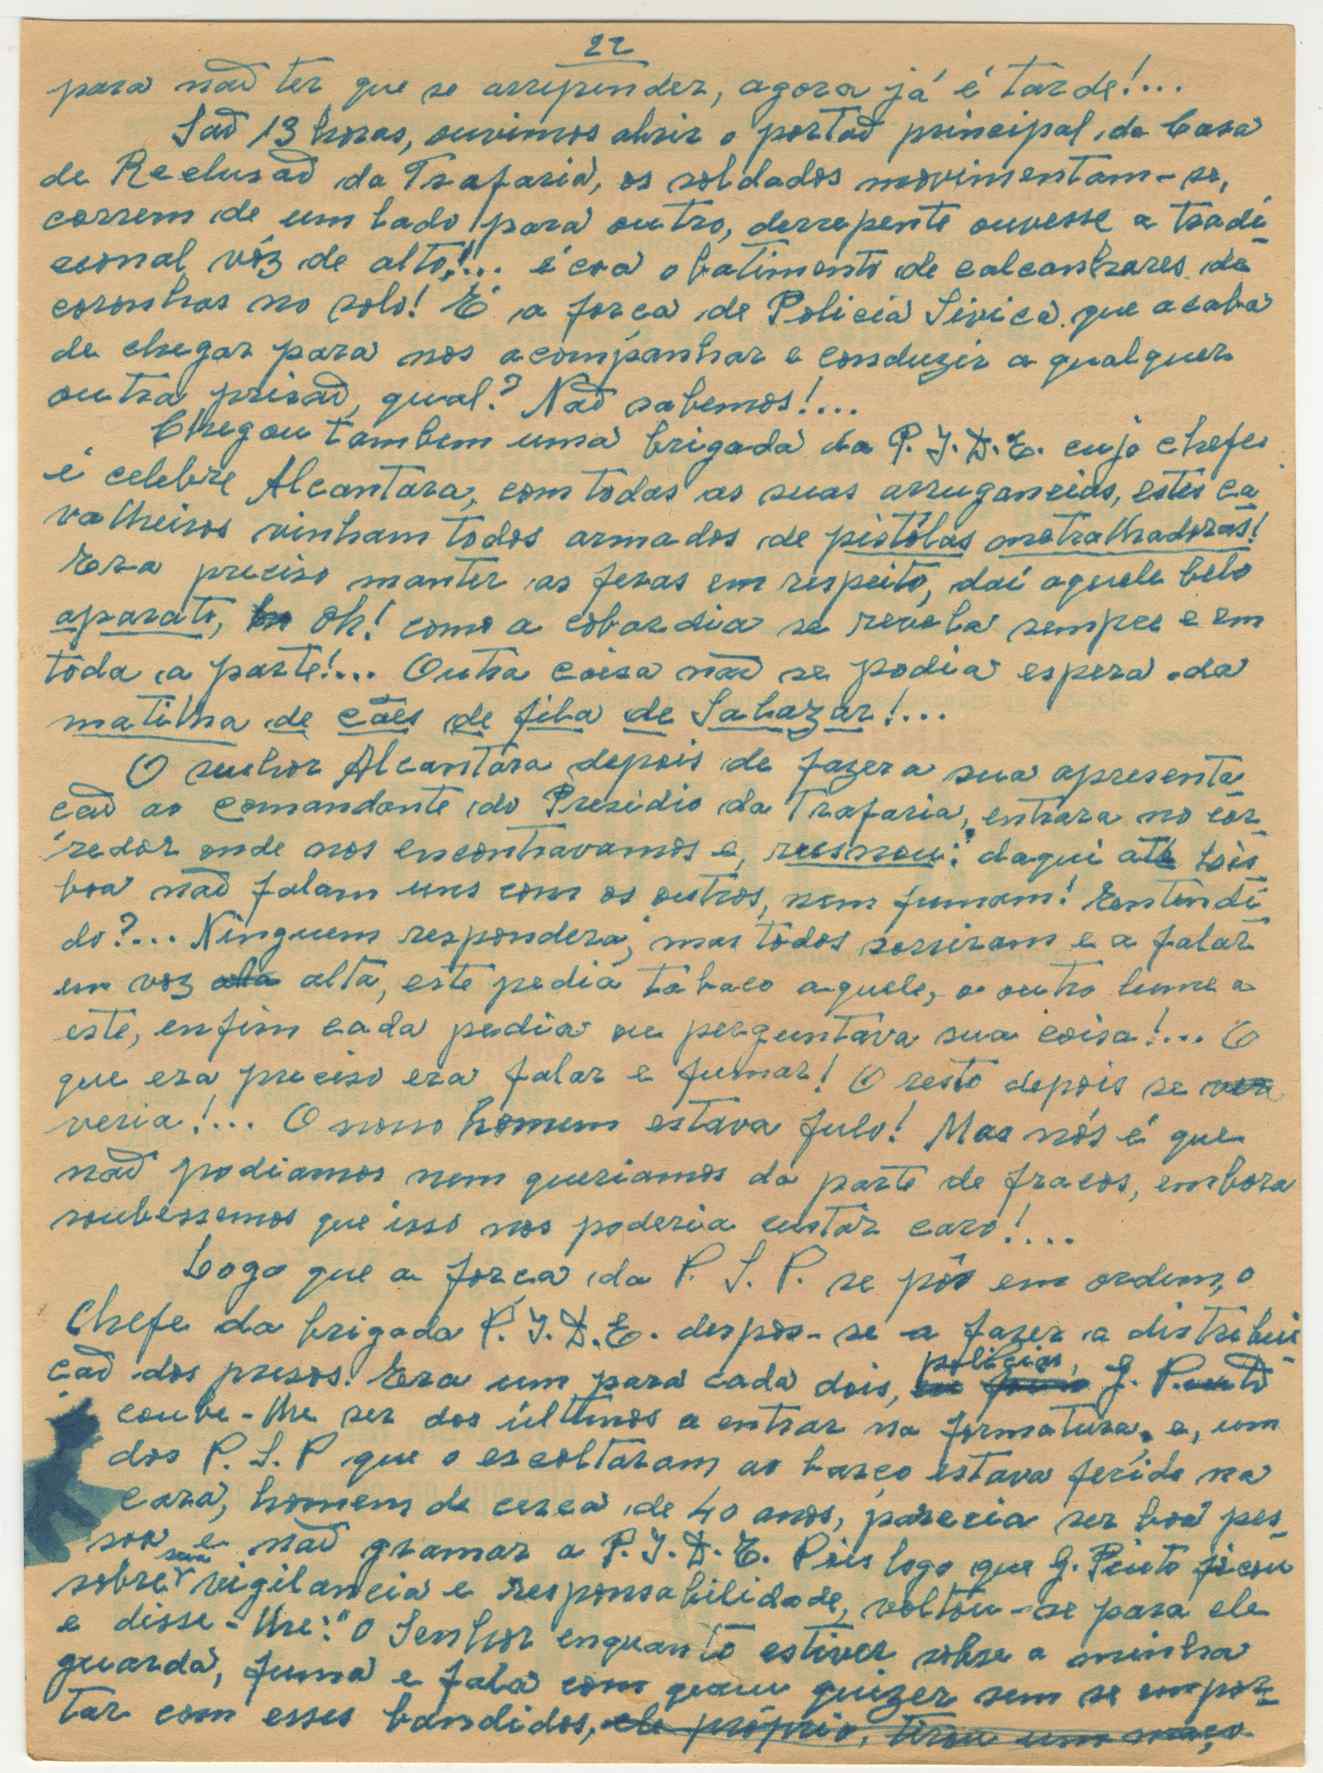 22
para não ter que se arripender, agora já é tarde!...
São 13 horas, ouvimos abrir o portão principal da Casa
de Reclusão da Trafaria, os soldados movimentam-se,
correm de um lado para outro, derrepente ouvesse a tradi
cional vóz de alto!... écoa o batimento de calcanhares de
coronhas no solo! É a forca de Policia Sivica que acaba
de chegar para nos acompanhar e conduzir a qualquer
outra prisão, qual? Não sabemos!...
Chegou tambem uma brigada da P.I.D.E. cujo chefe
é celebre Alcantara, com todas as suas arrugancias, estes ca
valheiros vinham todos armados de pistólas metralhadoras!
Era preciso manter as feras em respeito, daí aquele belo
aparato, Oh! como a cobardia se revela sempre e em
toda a parte!... Outra coisa não se podia espera da
matilha de cães de fila de Salazar!...
O senhor Alcantara depois de fazer a sua apresenta
cão ao comandante do Presidio da Trafaria, entrara no cor
redor onde nos encontravamos e, rusnou: daqui até Lois
boa não falam uns com os outros, nem fumam! Entendi
do?... Ninguem respondera, mas todos sorriram e a falar
em voz alta alta, este pedia tabaco aquele, o outro lume a
este, enfim cada pedia ou perguntava sua coisa!... O
que era preciso era falar e fumar! O resto depois se vera
veria!... O nosso homem estava fulo! Mas nós é que
não podiamos nem queriamos da parte de fracos, embora
soubessemos que isso nos poderia custar caro!....
Logo que a força da P. S. P. se pôs em ordem, o
chefe da brigada P.I.D.E. despos-se a fazer a distribui
cão dos presos. Era um para cada dois, policias, G. Pinto
couve-lhe ser dos últimos a entrar na formatura, e, um
dos P. S. P que o escoltaram ao barco estava ferido na
cara, homem de cerca de 40 anos, parecia ser boa pes
soa e não gramar a P.I.D.E. Pois logo que G. Pinto ficou
sobre sua vigilancia e responsabilidade, voltou-se para ele
e disse-lhe: "O Senhor enquanto estiver sobre a minha
guarda, fuma e fala com quem quizer sem se empor
tar com esses bandidos, ele próprio, tirou um maço